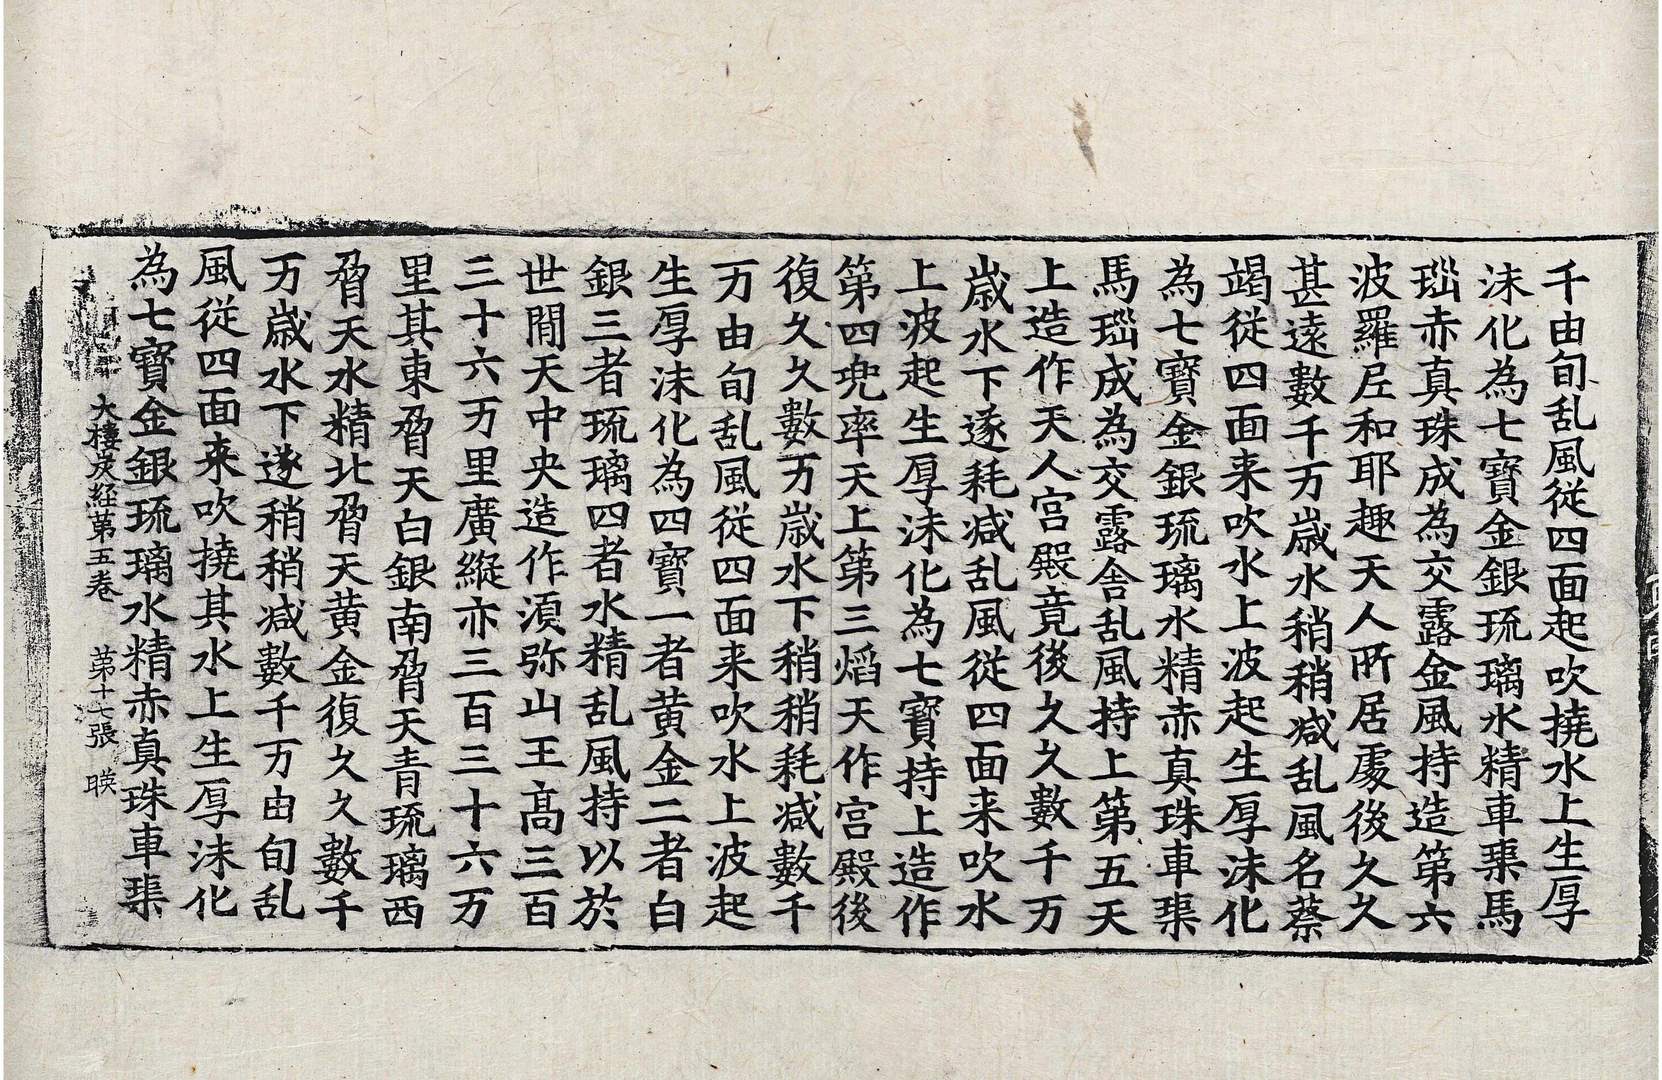 千由旬乱風従四面起吹撓水上生厚
沫化為七寶金銀琉璃水精車璖馬
瑙赤真珠成為交露金風持造第六
波羅尼和耶趣天人所居處後久久
甚遠數千万歳水稍稍減乱風名蔡
竭従四面来吹水上波起生厚沫化
為七寶金銀琉璃水精赤真珠車璖
馬瑙成為交露舎乱風持上第五天
上造作天人宮殿竟後久久數千万
歳水下遂耗減乱風従四面来吹水
上波起生厚沫化為七寶持上造作
第四兜率天上第三熖天作宮殿後
復久久數万歳水下稍稍耗減數千
万由旬乱風従四面来吹水上波起
生厚沫化為四寶一者黄金二者白
銀三者琉璃四者水精乱風持以於
世間天中央造作湏弥山王高三百
三十六万里廣縱亦三百三十六万
里其東脅天白銀南脅天青琉璃西
脅天水精北脅天黄金復久久數千
万歳水下遂稍稍減數千万由旬乱
風従四面来吹撓其水上生厚沫化
為七寶金銀琉璃水精赤真珠車璖
大樓炭経苐五巻 苐十七張 暎